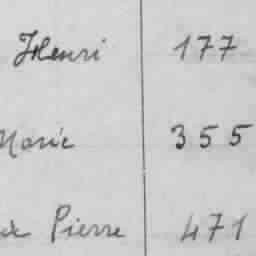 Henri 177
Marie 355
Pierre 471